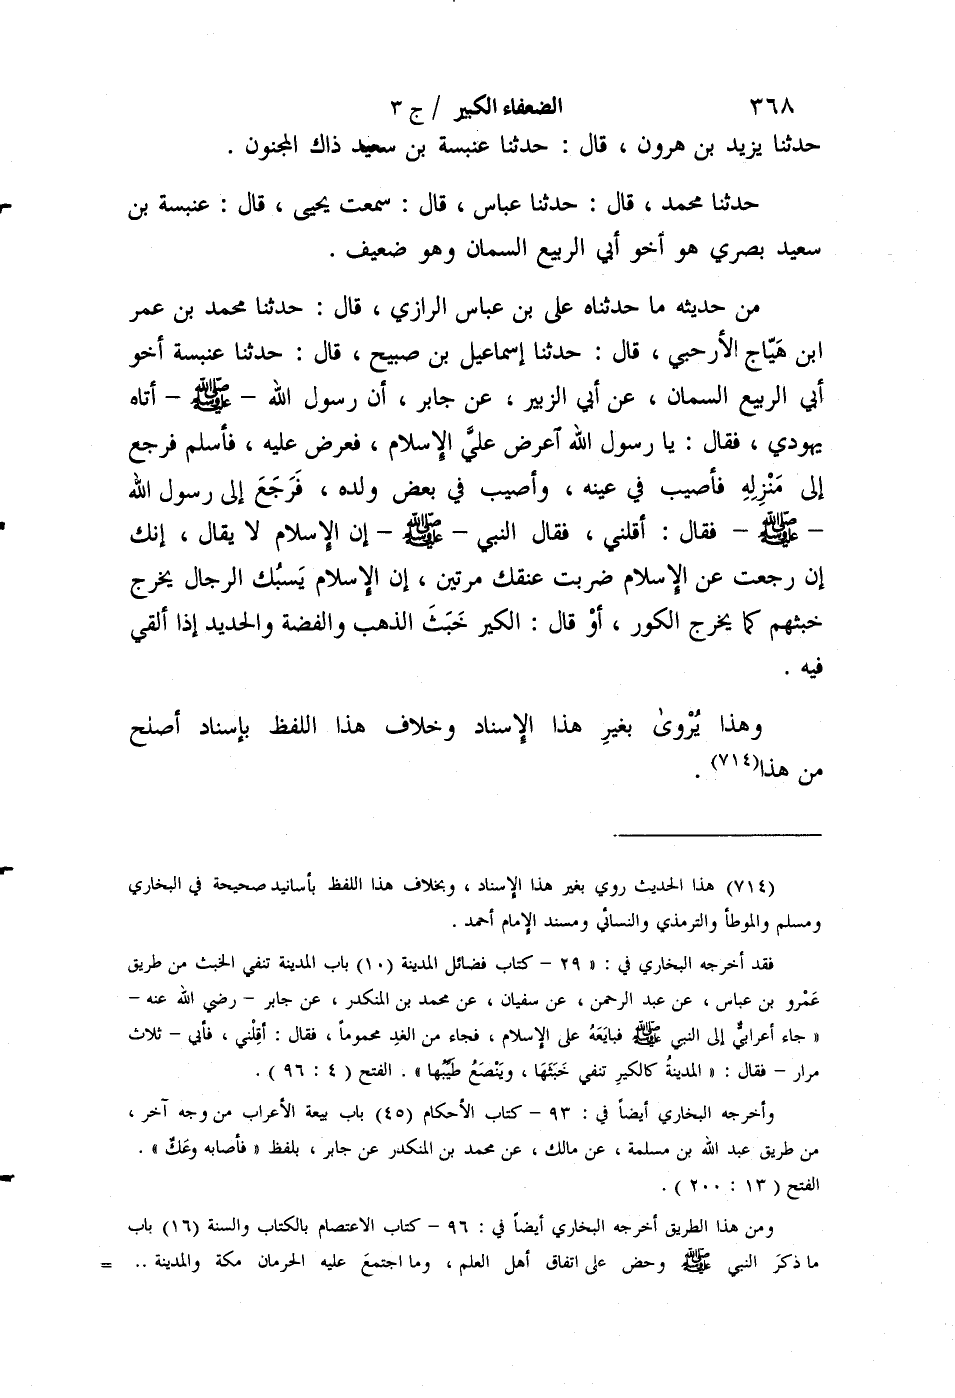 ٣٦٨ الضعفاء الكبير / ج ٣
حدثنا يزيد بن هرون ، قال : حدثنا عنبسة بن سعيد ذاك المجنون .
حدثنا محمد ، قال : حدثنا عباس ، قال : سمعت يحيى ، قال : عنبسة بن
سعيد بصري هو أخو أبي الربيع السمان وهو ضعيف .
من حديثه ما حدثناه على بن عباس الرازي ، قال : حدثنا محمد بن عمر
ابن هَيّاج الأرحبي ، قال : حدثنا إسماعيل بن صبيح ، قال : حدثنا عنبسة أخو
أبي الربيع السمان ، عن أبي الزبير ، عن جابر ، أن رسول الله - ﷺ - أتاه
يهودي ، فقال : يا رسول الله آعرض عليَّ الإسلام ، فعرض عليه ، فأسلم فرجع
إلى مَنْزِلِهِ فأصيب في عينه ، وأصيب في بعض ولده ، فَرَجَعَ إلى رسول الله
- ﷺ - فقال : أقلني ، فقال النبي - ﷺ - إن الإسلام لا يقال ، إنك
إن رجعت عن الإسلام ضربت عنقك مرتين ، إن الإسلام يَسبُك الرجال يخرج
خبثهم كما يخرج الكور ، أوْ قال : الكير خَبَثَ الذهب والفضة والحديد إذا ألقي
فيه .
وهذا يُرْوىٰ بغيرِ هذا الإسناد وخلاف هذا اللفظ بإسناد أصلح
من هذا(٧١٤) .
(٧١٤) هذا الحديث روي بغير هذا الإسناد ، وبخلاف هذا اللفظ بأسانيد صحيحة في البخاري
ومسلم والموطأ والترمذي والنسائي ومسند الإمام أحمد .
فقد أخرجه البخاري في : « ٢٩ - كتاب فضائل المدينة (١٠) باب المدينة تنفي الخبث من طريق
عَمْرو بن عباس ، عن عبد الرحمن ، عن سفيان ، عن محمد بن المنكدر ، عن جابر - رضي الله عنه -
« جاء أعرابيٌّ إلى النبي ﷺ فبايَعَهُ على الإسلام ، فجاء من الغدِ محموماً ، فقال : أقِلْني ، فأبي - ثلاث
مرار - فقال : « المدينةُ كالكيرِ تنفي خَبَثَها ، ويَنْصَعُ طَيِّبُها » . الفتح ( ٤ : ٩٦ ) .
وأخرجه البخاري أيضاً في : ٩٣ - كتاب الأحكام (٤٥) باب بيعة الأعراب من وجه آخر ،
من طريق عبد الله بن مسلمة ، عن مالك ، عن محمد بن المنكدر عن جابر ، بلفظ « فأصابه وعَكٌ » .
الفتح ( ١٣ : ٢٠٠ ) .
ومن هذا الطريق أخرجه البخاري أيضاً في : ٩٦ - كتاب الاعتصام بالكتاب والسنة (١٦) باب
ما ذكرَ النبي ﷺ وحض على اتفاق أهل العلم ، وما اجتمعَ عليه الحرمان مكة والمدينة .. =